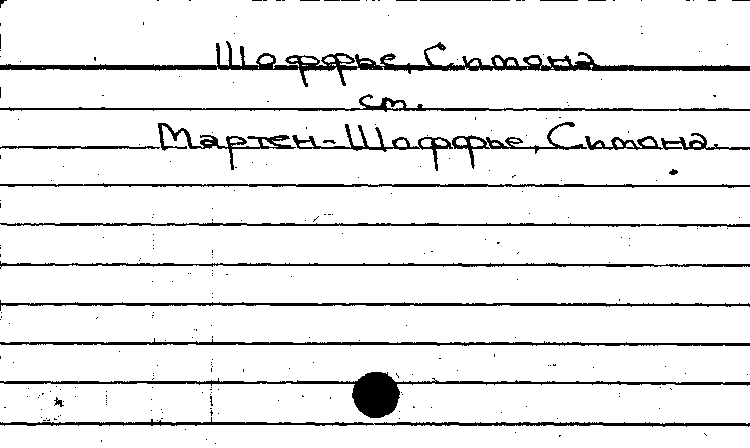 Шоффье, Симона
см.
Мартен-Шоффье, Симона.